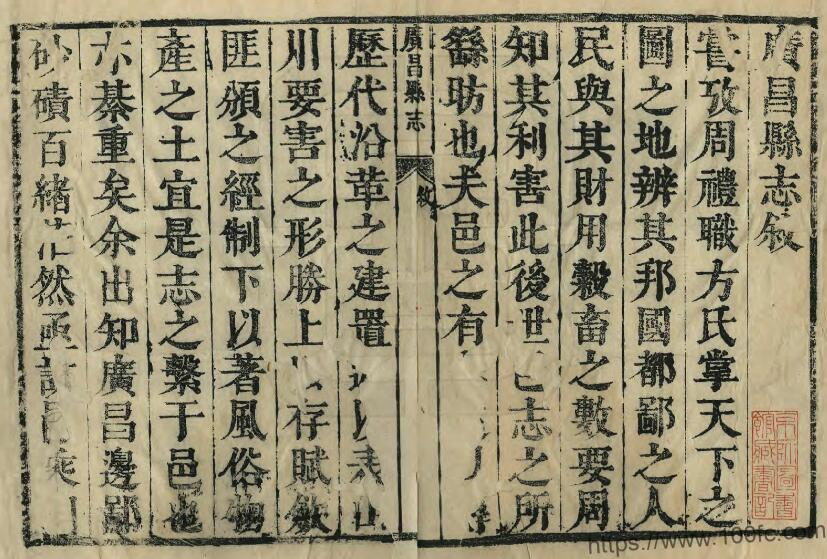 廣昌縣志敘
嘗攷周禮職方氏掌天下之
圖之地辨其邦國都鄙之人
民與其財用穀畜之數要周
知其利害此後世志之所
繇昉也夫邑之有
廣昌縣志 敘
歷代沿革之建置以表山
川要害之形勝上存賦斂
匪頒之經制下以著風俗物
產之土宜是志之繫于邑也
亦綦重矣余出知廣昌邊鄙
砂磧百緒茫然亟討邑乘
https://www.100fc.com